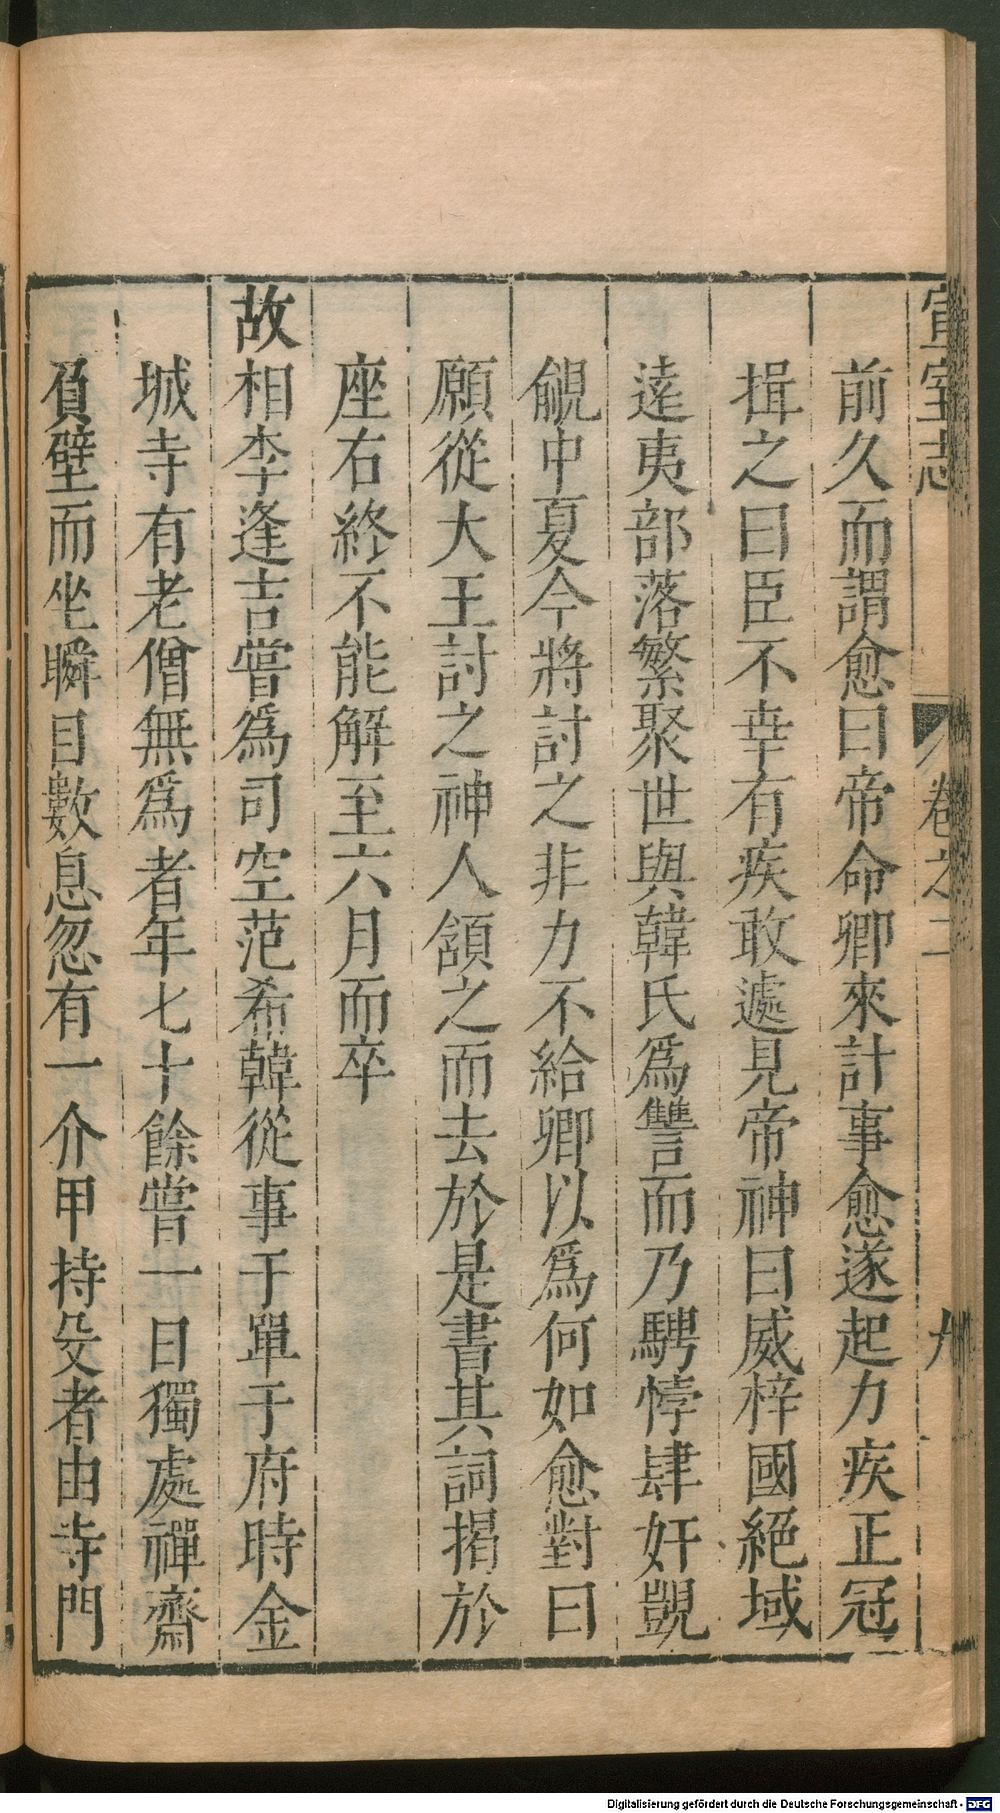 宣室志 卷之二
前久而謂愈曰帝命卿來計事愈遂起力疾正冠
揖之曰臣不幸有疾敢遽見帝神曰威梓國絕域
遠夷部落繁聚世與韓氏爲讐而乃騁悖肆奸覬
覦中夏今將討之非力不給卿以爲何如愈對曰
願從大王討之神人頷之而去於是書其詞揭於
座右終不能解至六月而卒
故相李逢吉嘗爲司空范希韓從事于單于府時金
城寺有老僧無爲者年七十餘嘗一日獨處禪齋
負壁而坐瞬目數息忽有一介甲持殳者由寺門
Digitalisierung gefördert durch die Deutsche Forschungsgemeinschaft - DFG